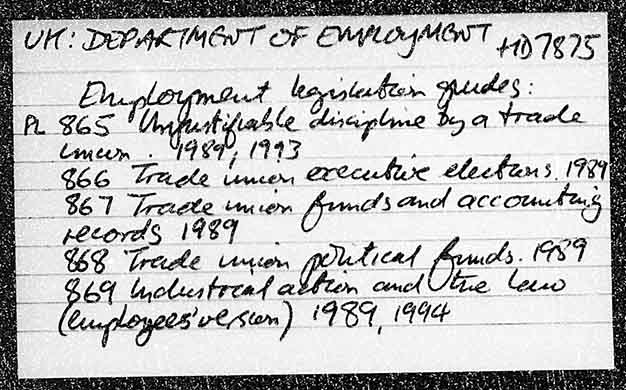 UK: DEPARTMENT OF EMPLOYMENT HD7875
Employment legislation guides:
PL 865 Unjustifiable discipline by a trade
union. 1989, 1993
866 Trade union executive elections. 1989
867 Trade union funds and accounting
records 1989
868 Trade union political funds. 1989
869 Industrial action and the law
(employees' version) 1989, 1994